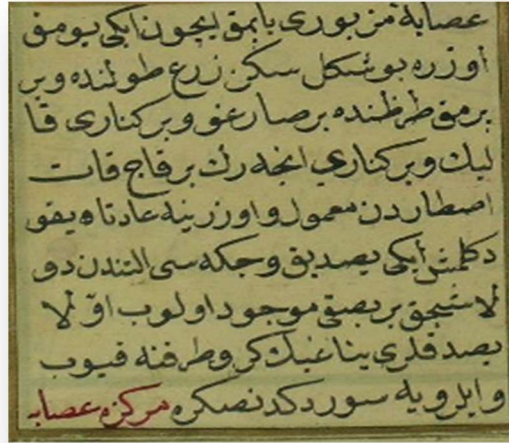 عصابهٔ مزبوری یاپمق ایچون ایکی یومق
اوزره بو شکل سکز زرع طولنده و بر
برمق طرظنده بر صارغو و بر کناری قا
لیك و بر کناری انجه رك بر قاچ قات
اصطاردن معمول و اوزرینه عادتا
دکلمش ایکی یصدیق و چکه سی التندن دو
لاشیجق بر یصتی موجود اولوب اوّلا
یصدقلری یناغنك کر و طرفنه قیوب
و ایلرویه سوردکدنصکره مرکزه عصابه